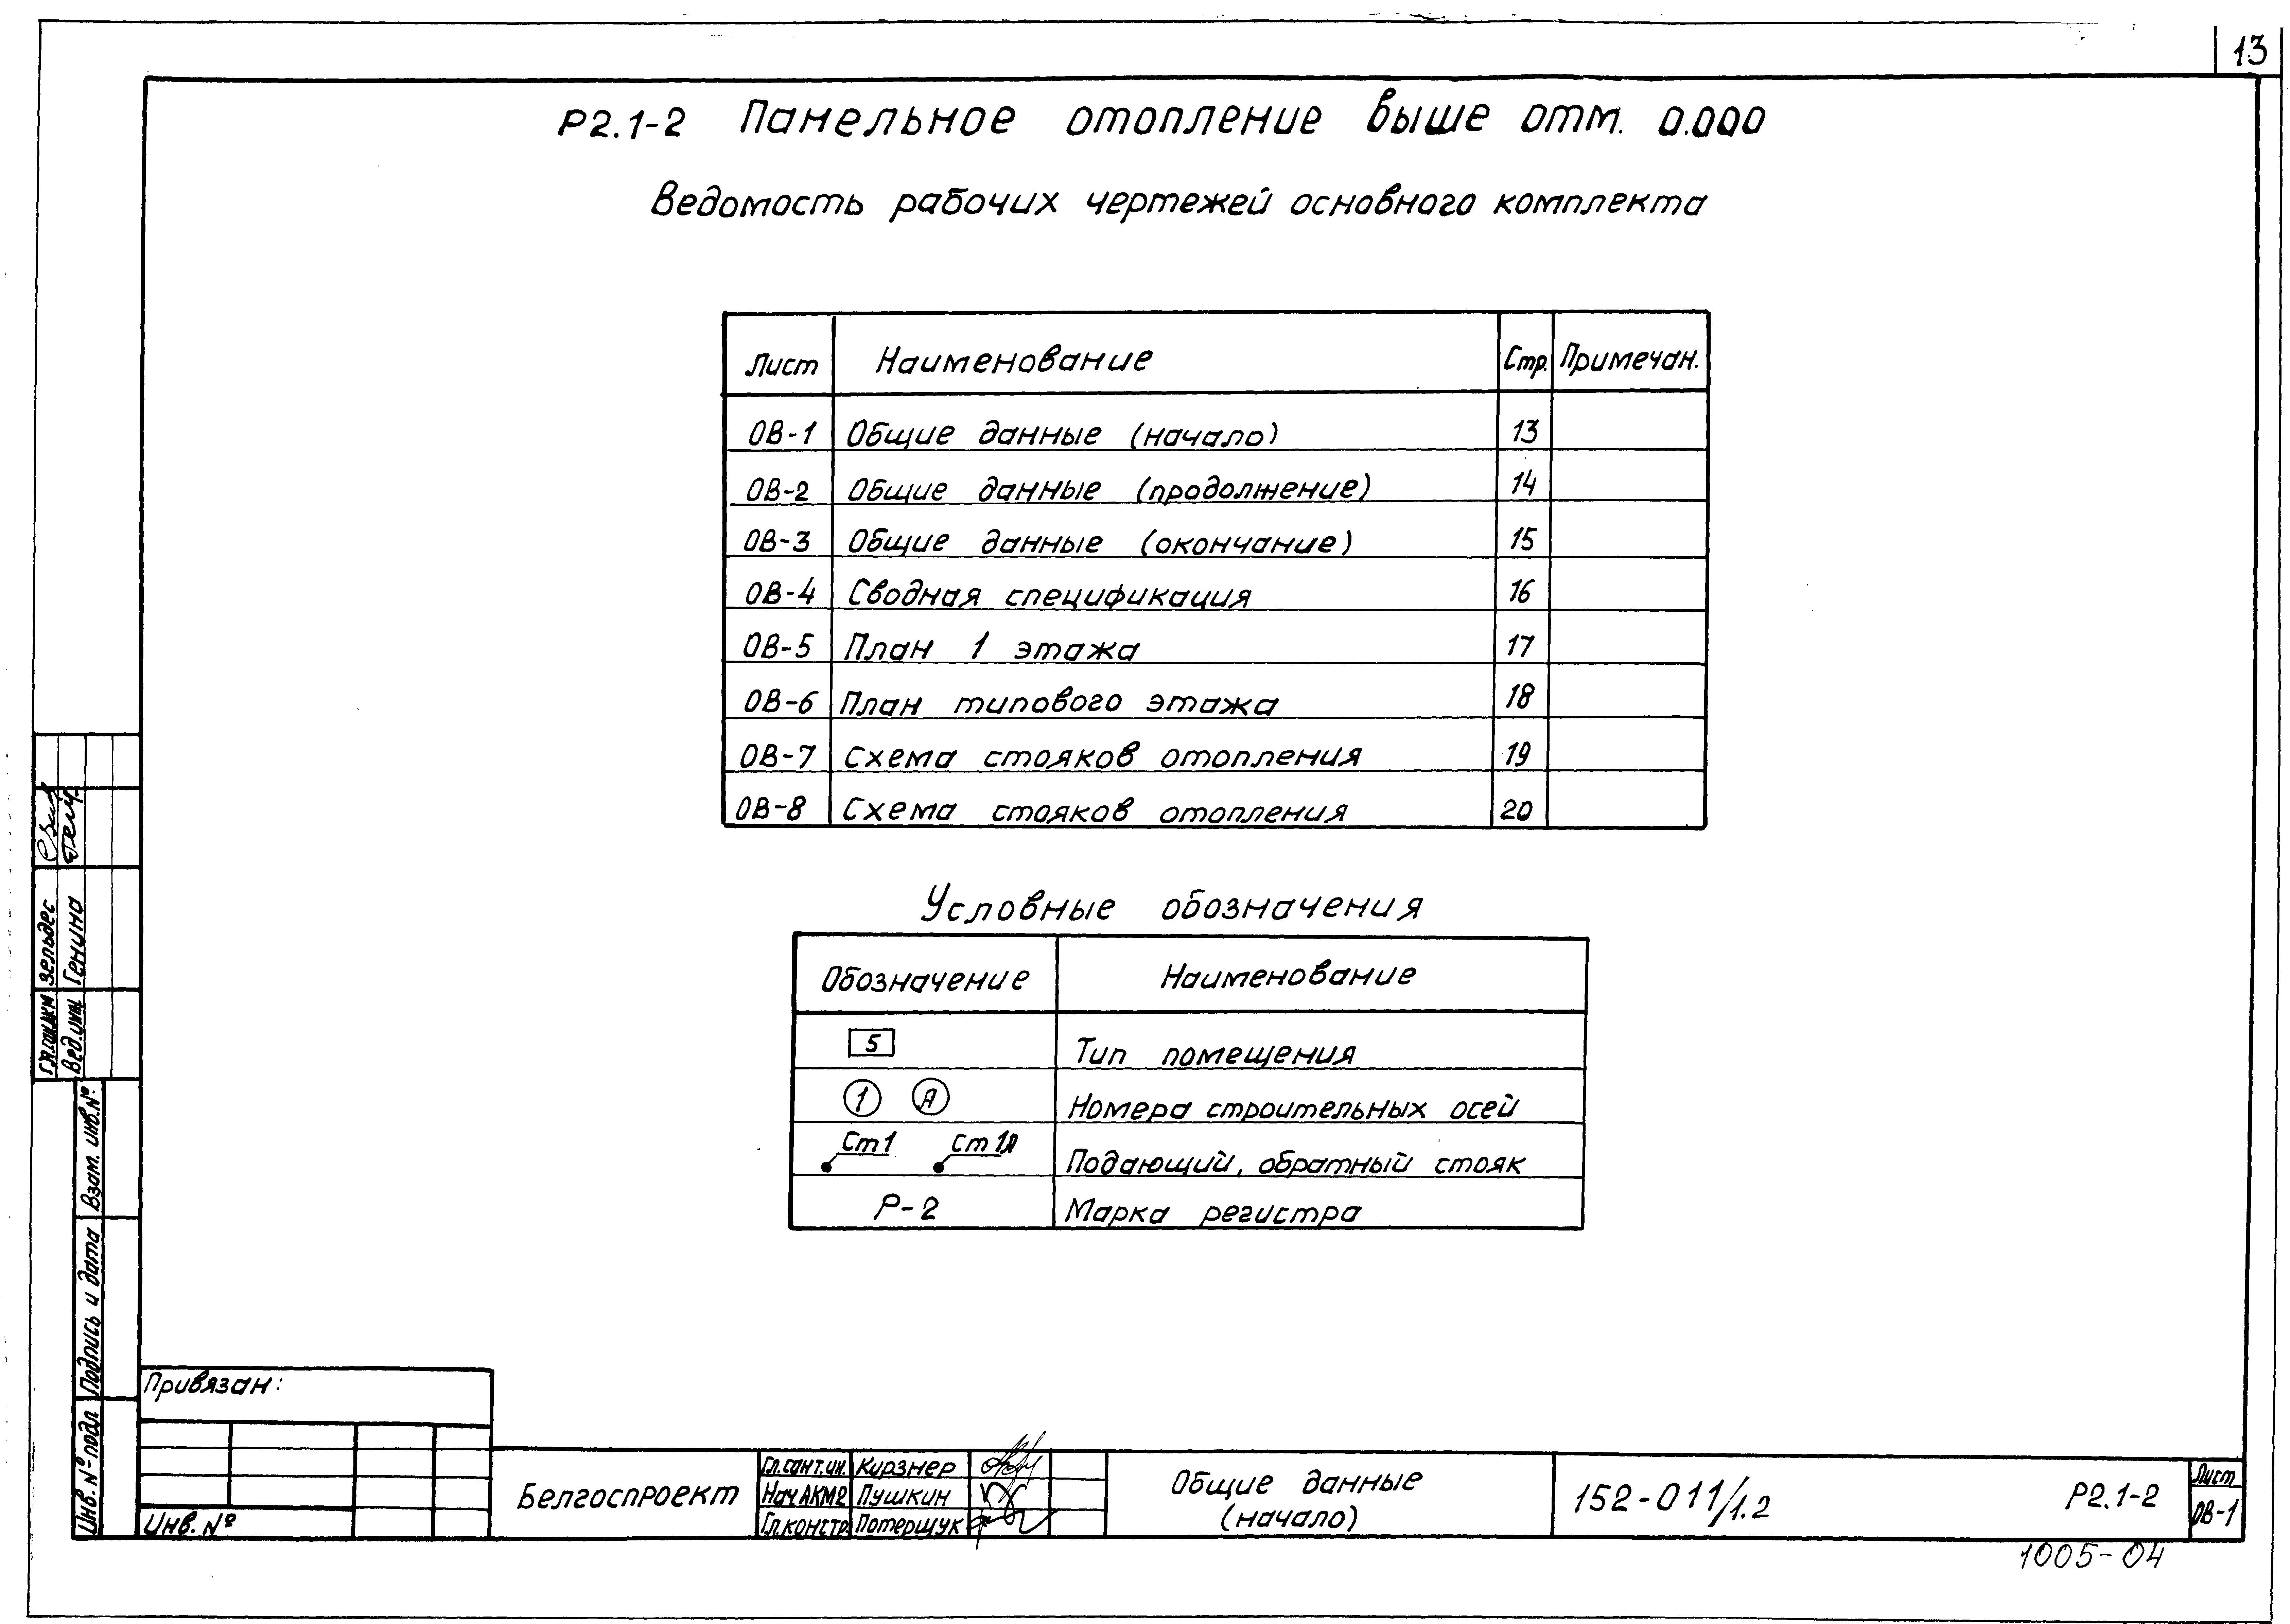 13
Р2.1-2 Панельное отопление выше отм. 0.000
Ведомость рабочих чертежей основного комплекта
Лист Наименование Стр. Примечан.
ОВ-1 Общие данные (начало) 13
ОВ-2 Общие данные (продолжение) 14
ОВ-3 Общие данные (окончание) 15
ОВ-4 Сводная спецификация 16
ОВ-5 План 1 этажа 17
ОВ-6 План типового этажа 18
ОВ-7 Схема стояков отопления 19
ОВ-8 Схема стояков отопления 20
Условные обозначения
Обозначение Наименование
5 Тип помещения
1 А Номера строительных осей
Ст1 Ст1А Подающий, обратный стояк
Р-2 Марка регистра
Зельдес
Вед.инж. Генина
Взам. инв.№
Подпись и дата
Инв.№ подл
Привязан:
Инв.№
Белгоспроект
Гл.сант.ин. Курзнер
Нач АКМ2 Пушкин
Гл.констр. Потерщук
Общие данные
(начало)
152-011/1.2 Р2.1-2
Лист
ОВ-1
1005-04